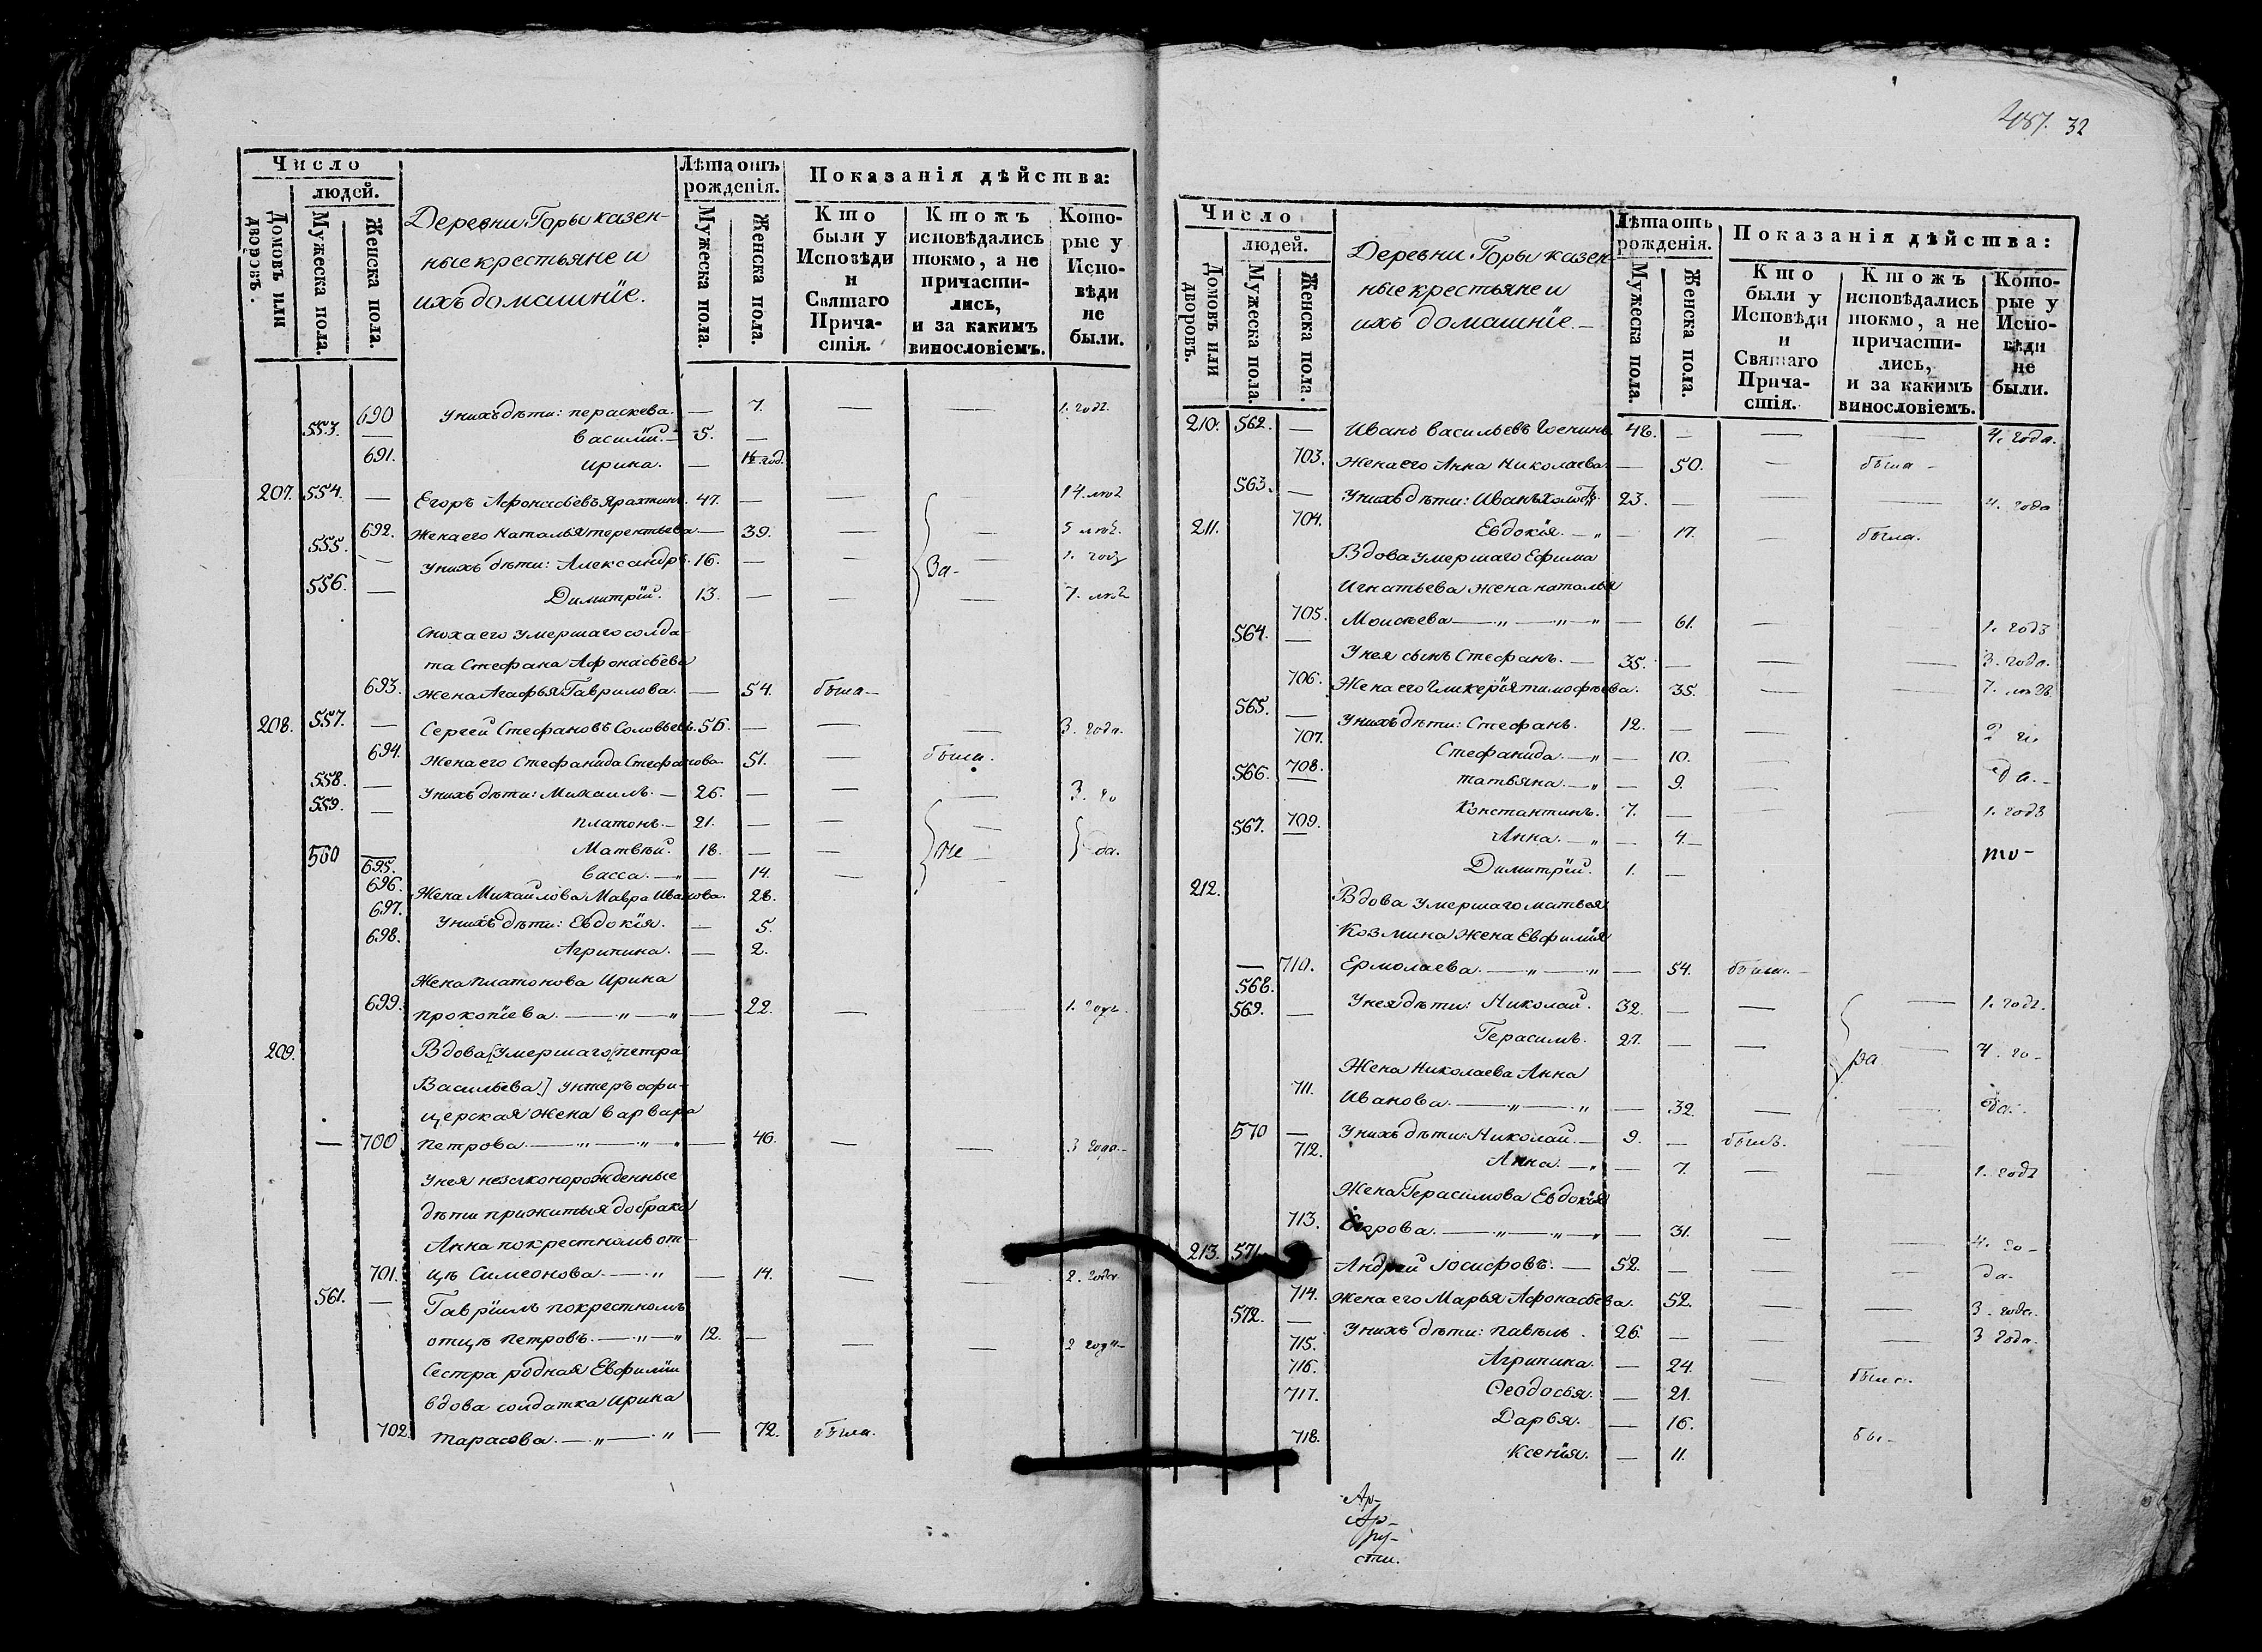 487. 32
Число
людей.
Домовъ или дворовъ.
Мужеска пола.
Женска пола.
Деревни Горы казен-
ные крестьяне и
ихъ домашніе.
Лѣта отъ рожденія.
Мужеска пола.
Женска пола.
Показанія дѣйства:
Кто были у Исповѣди и Святаго Прича-стія.
Ктожъ исповѣдались токмо, а не причасти-лись, и за какимъ винословіемъ.
Кото-рые у Испо-вѣди не были.
690 У нихъ дѣти: Параскева. — 7. — — 1. годъ.
553. — Василій. — 5. —
691. Ирина. —
207. 554. — Егоръ Афонасьевъ 47. — — 14. лѣтъ
692. Жена его Наталья Терентьева — 39. — — 5 лѣтъ.
555. — У нихъ дѣти: Александръ. 16. — — — 1. годъ
За-
556. — Димитрій. 13. — — — 7. лѣтъ
Сноха его умершаго солда-
та Стефана Афонасьева
693. жена Агафья Гаврилова. — 54. была —
208. 557. — Сергей Стефановъ Соловьевъ. 56. — — — 3. года.
694. Жена его Стефанида Стефанова. 51. — была.
558. — У нихъ дѣти: Михаилъ. — 26. — — — 3. го
559. — Платонъ. — 21. — — —
560 — Матвѣй. 18. — — Не — да.
695. Васса. — „ — 14. —
696. Жена Михайлова Мавра Иванова. 28.
697. У нихъ дѣти: Евдокія. — 5.
698. Агрипина. — 2.
Жена Платонова Ирина
699. Прокопіева. — „ — „ — 22. — — 1. годъ.
209. Вдова [умершаго Петра
Васильева] унтеръ офи-
церская жена Варвара
— 700 Петрова. — „ — „ — „ — 46. — — 3 года. —
У нея незаконорожденные
дѣти прижитыя до брака
Анна по крестномъ от-
701. цѣ Симеонова. — „ — 14. — — 2. года.
561. — Гавріилъ по крестномъ
отцѣ Петровъ. — „ — „ 12. — — — 2 года —
Сестра родная Евфиміи
вдова солдатка Ирина
702. Тарасова. — „ — „ — 72. была.
Число
людей.
Домовъ или дворовъ.
Мужеска пола.
Женска пола.
Деревни Горы казен-
ные крестьяне и
ихъ домашніе. —
Лѣта отъ рожденія.
Мужеска пола.
Женска пола.
Показанія дѣйства:
Кто были у Исповѣди и Святаго Прича-стія.
Ктожъ исповѣдались токмо, а не причасти-лись, и за какимъ винословіемъ.
Кото-рые у Испо-вѣди не были.
210. 562. — Иванъ Васильевъ 48. — — — 4. года.
703. Жена его Анна Николаева — 50. — была —
563. — У нихъ дѣти: Иванъ 23. — — — 4. года
704. Евдокія. — „ — 17. — была.
211. Вдова умершаго Ефима
Игнатьева жена Наталья
705. Моисеева — „ — „ — „ — 61. — — 1. годъ
564. — У нея сынъ Стефанъ. — 35. — — — 3. года.
706. Жена его Гликерія Тимофѣева. 35. — — 7. лѣтъ.
565. — У нихъ дѣти: Стефанъ. 12. — — 2 го
707. Стефанида. — „ — 10. —
708. Татьяна. — „ — 9. — да. —
566. — Константинъ. 7. — — 1. годъ
709. Анна. — „ — 4. —
567. — Димитрій. 1. — то —
212. Вдова умершаго Матвея
Козмина жена Евфимія
— 710. Ермолаева. — „ — „ — 54. была. —
568. У нея дѣти: Николай. 32. — — — 1. годъ.
569. — Герасимъ. 27. — — ра — 4. го —
Жена Николаева Анна
711. Иванова. — „ — „ — 32. — — да.
570 — У нихъ дѣти: Николай. — 9. — былъ. —
712. Анна. — „ — 7. — — 1. годъ
Жена Герасимова Евдокія
713. Егорова. — „ — „ — „ — 31. — 4. го —
213. 571. Андрей Іосифовъ. — 52. — — — да.
714. Жена его Марья Афонасьева. 52. — — 3. года.
572. — У нихъ дѣти: Павелъ. 26. — — — 3 года.
715. Агрипина. — 24. — была.
716. Ѳеодосья. — 21.
717. Дарья. — 16. бы-
718. Ксенія. — 11.